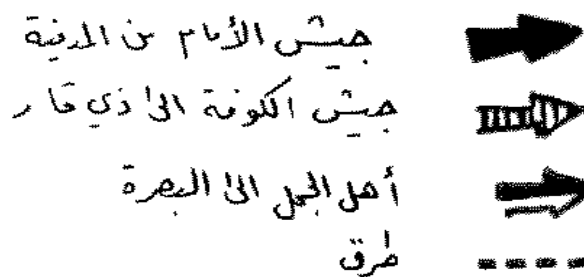 جيش الأمام من المدنية
جيش الكوفة الى ذي قار
أهل الجمل الى البصرة
طرق